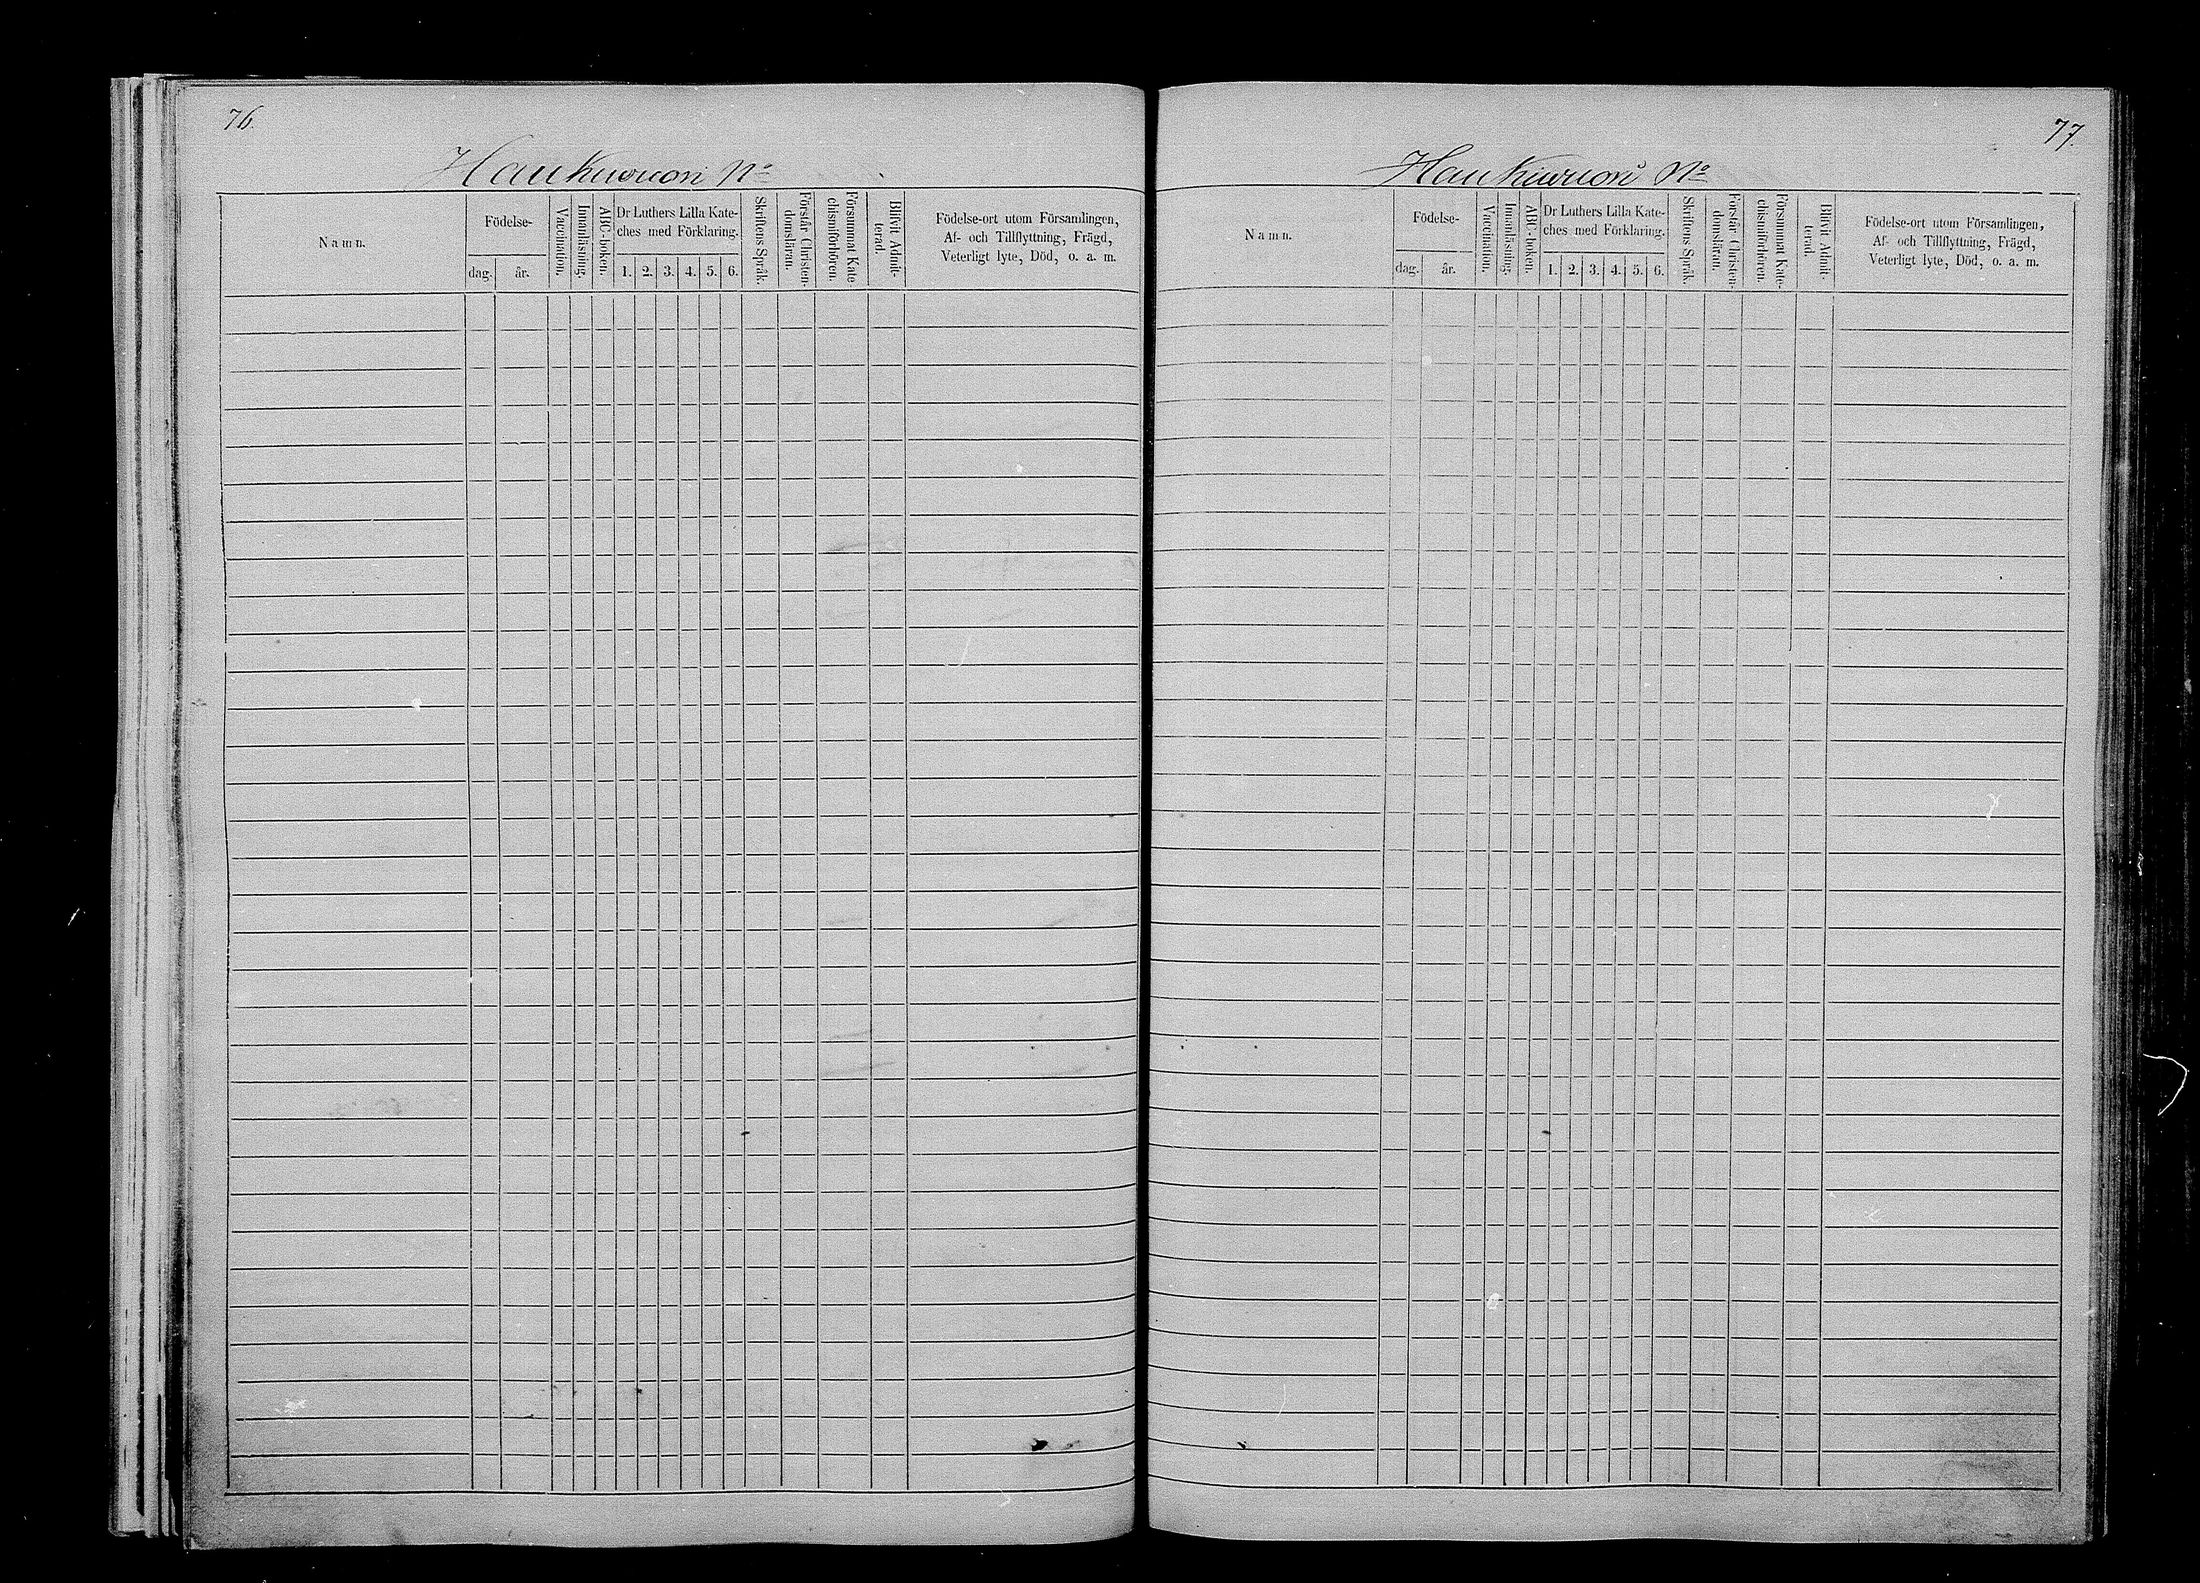 76.
Haukivuori No
Namn.
Födelse-
dag.
år.
Vaccination.
Innanläsning.
ABC-boken.
Dr Luthers Lilla Kate-
ches med Förklaring.
1. 2. 3. 4. 5. 6.
Skriftens Språk.
Förstår Christen-
domsläran.
Försummat Kate
chismiförhören.
Blifvit Admit-
terad.
Födelse-ort utom Församlingen,
Af- och Tillflyttning, Frägd,
Veterligt lyte, Död, o. a. m.
77.
Haukivuori No
Namn.
Födelse-
dag.
år.
Vaccination.
Innanläsning.
ABC-boken.
Dr Luthers Lilla Kate-
ches med Förklaring.
1. 2. 3. 4. 5. 6.
Skriftens Språk.
Förstår Christen-
domsläran.
Försummat Kate-
chismiförhören.
Blifvit Admit-
terad.
Födelse-ort utom Församlingen,
Af- och Tillflyttning, Frägd,
Veterligt lyte, Död, o. a. m.